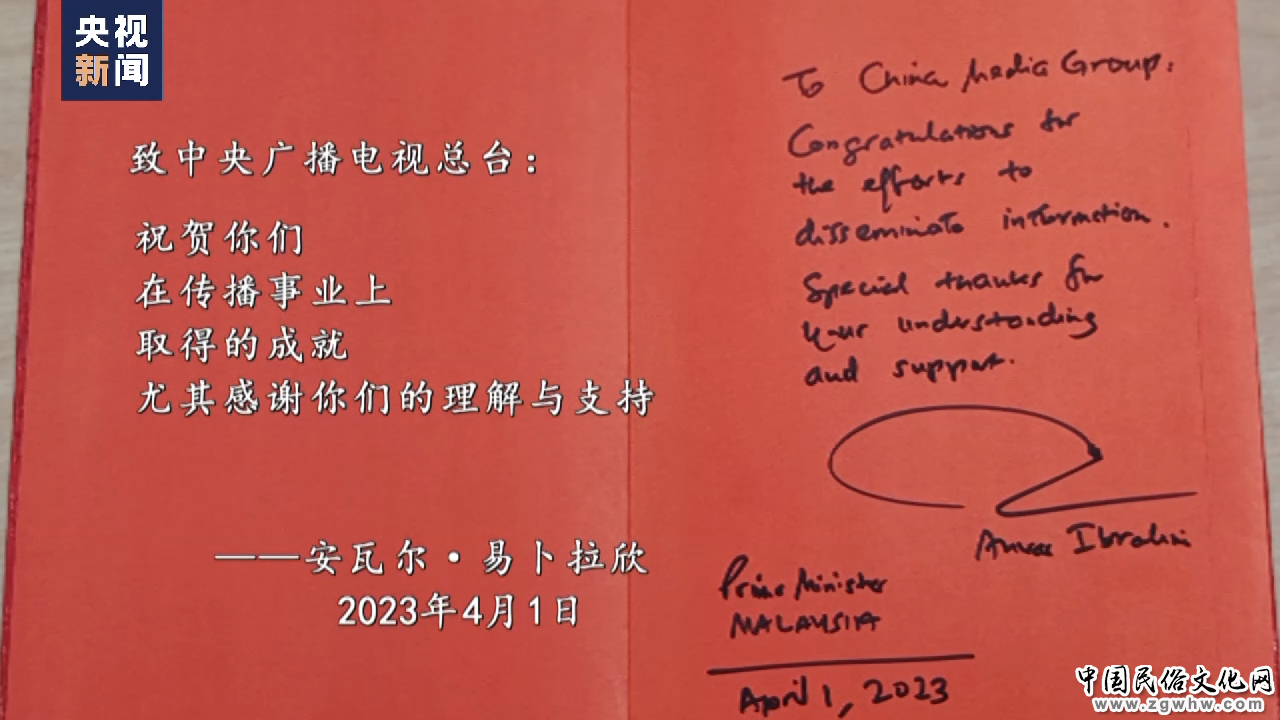 央视
新闻
致中央广播电视总台：
祝贺你们
在传播事业上
取得的成就
尤其感谢你们的理解与支持
——安瓦尔·易卜拉欣
2023年4月1日
To China Media Group.
Congratulations for
the efforts to
disseminate information.
Special thanks for
your understanding
and support.
Anwar Ibrahim
Prime Minister
MALAYSIA
April 1, 2023
中国民俗文化网
www.zgwhw.com